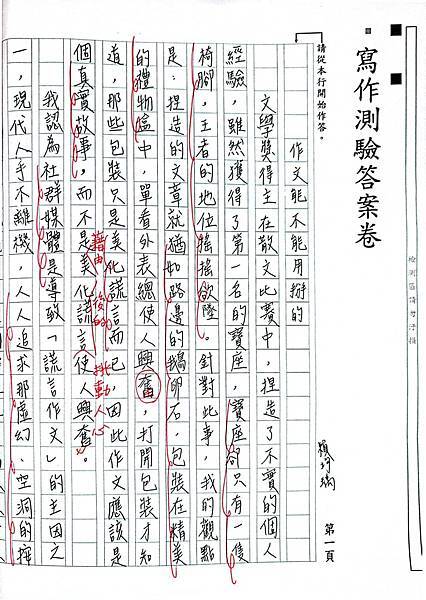 寫作測驗答案卷
請從本行開始作答。
第一頁
作文能不能用掰的
文學獎得主在散文比賽中，捏造了不實的個人
經驗，雖然獲得了第一名的寶座，寶座卻只有一隻
椅腳，王者的地位搖搖欲墜。針對此事，我的觀點
是：捏造的文章就猶如路邊的鵝卵石，包裝在精美
的禮物盒中，單看外表總使人興奮，打開包裝才知
道，那些包裝只是美化謊言而已，因此作文應該是
藉由 後的 撼動人心
個真實故事，而不是美化謊言使人興奮。
我認為社群媒體是導致「謊言作文」的主因之
一，現代人手不離機，人人追求那虛幻、空洞的